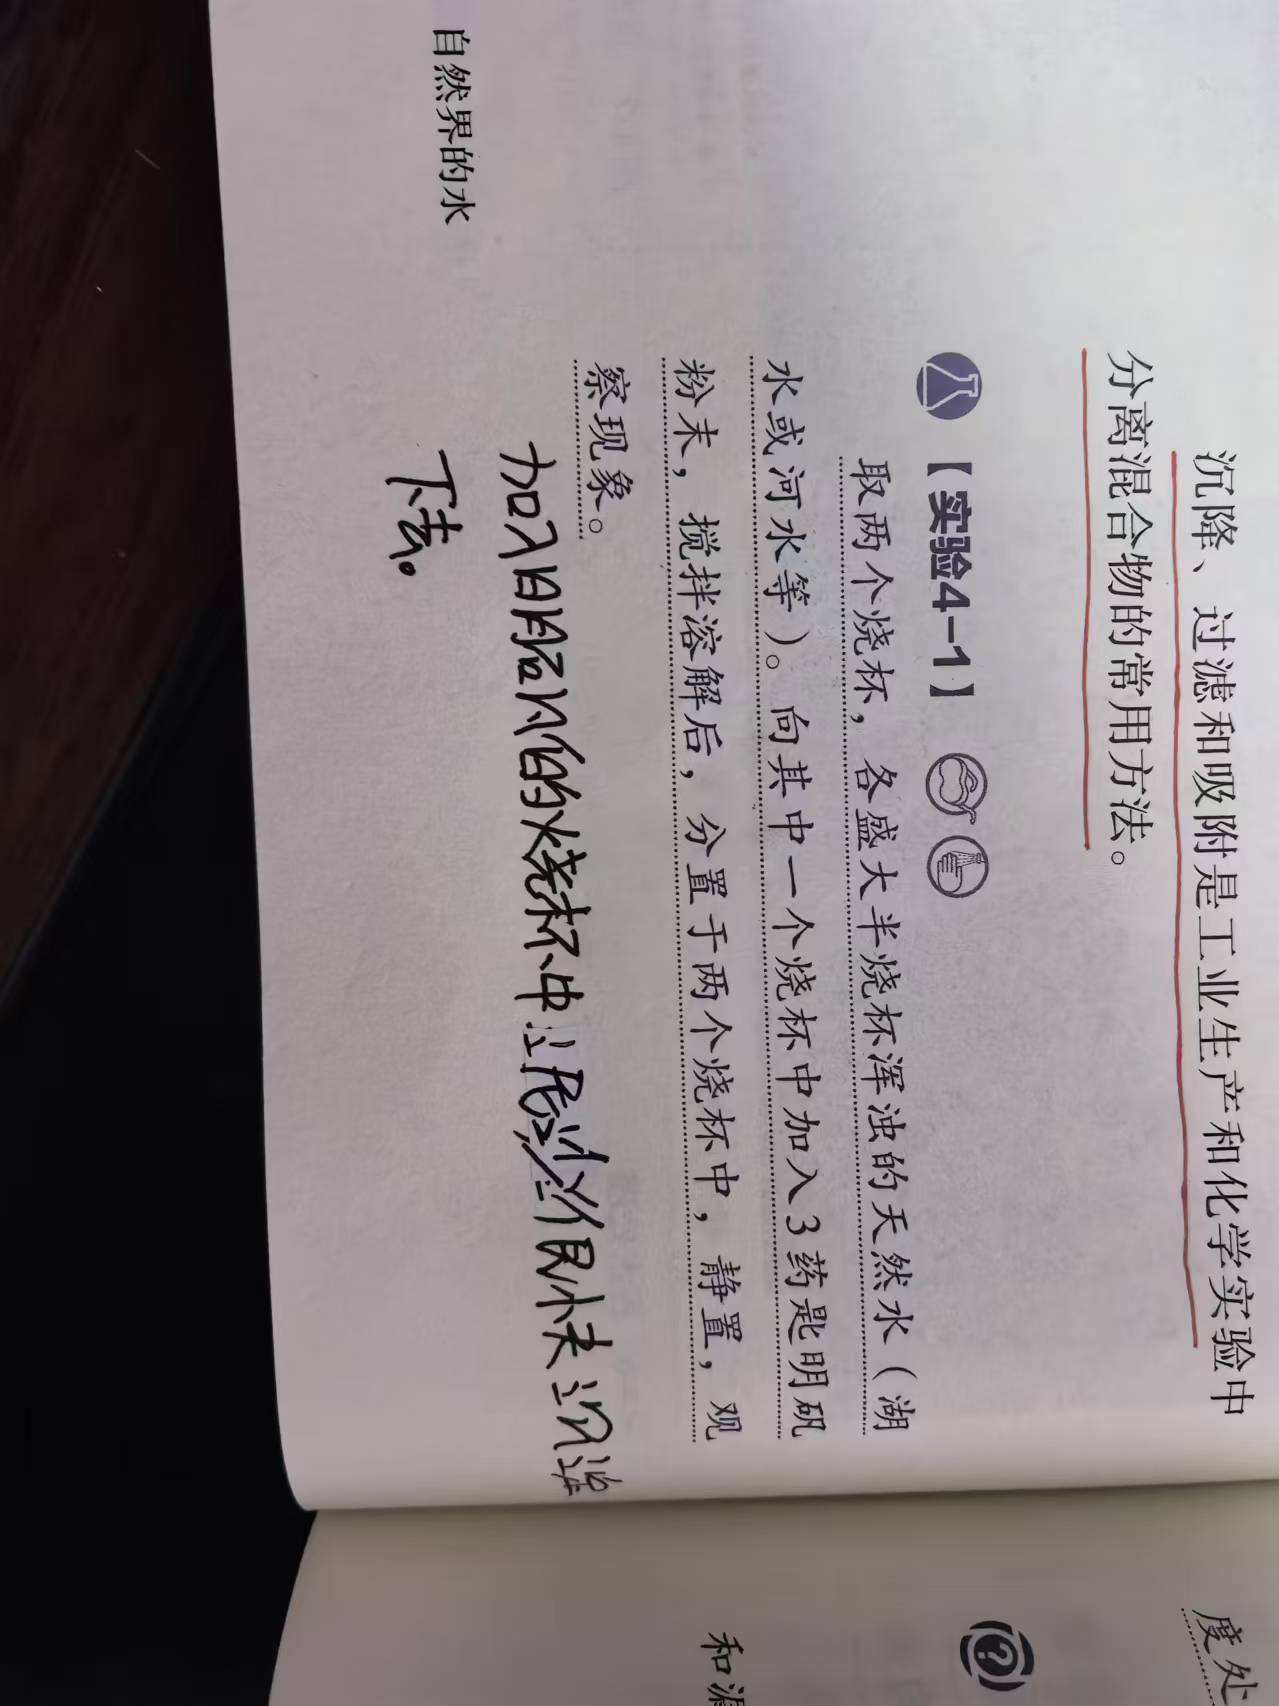 沉降、过滤和吸附是工业生产和化学实验中
分离混合物的常用方法。
【实验4-1】
取两个烧杯，各盛大半烧杯浑浊的天然水（湖
水或河水等）。向其中一个烧杯中加入3药匙明矾
粉末，搅拌溶解后，分置于两个烧杯中，静置，观
察现象。
加入明矾的烧杯中泥沙很快沉淀
下去。
自然界的水
度处
?
和